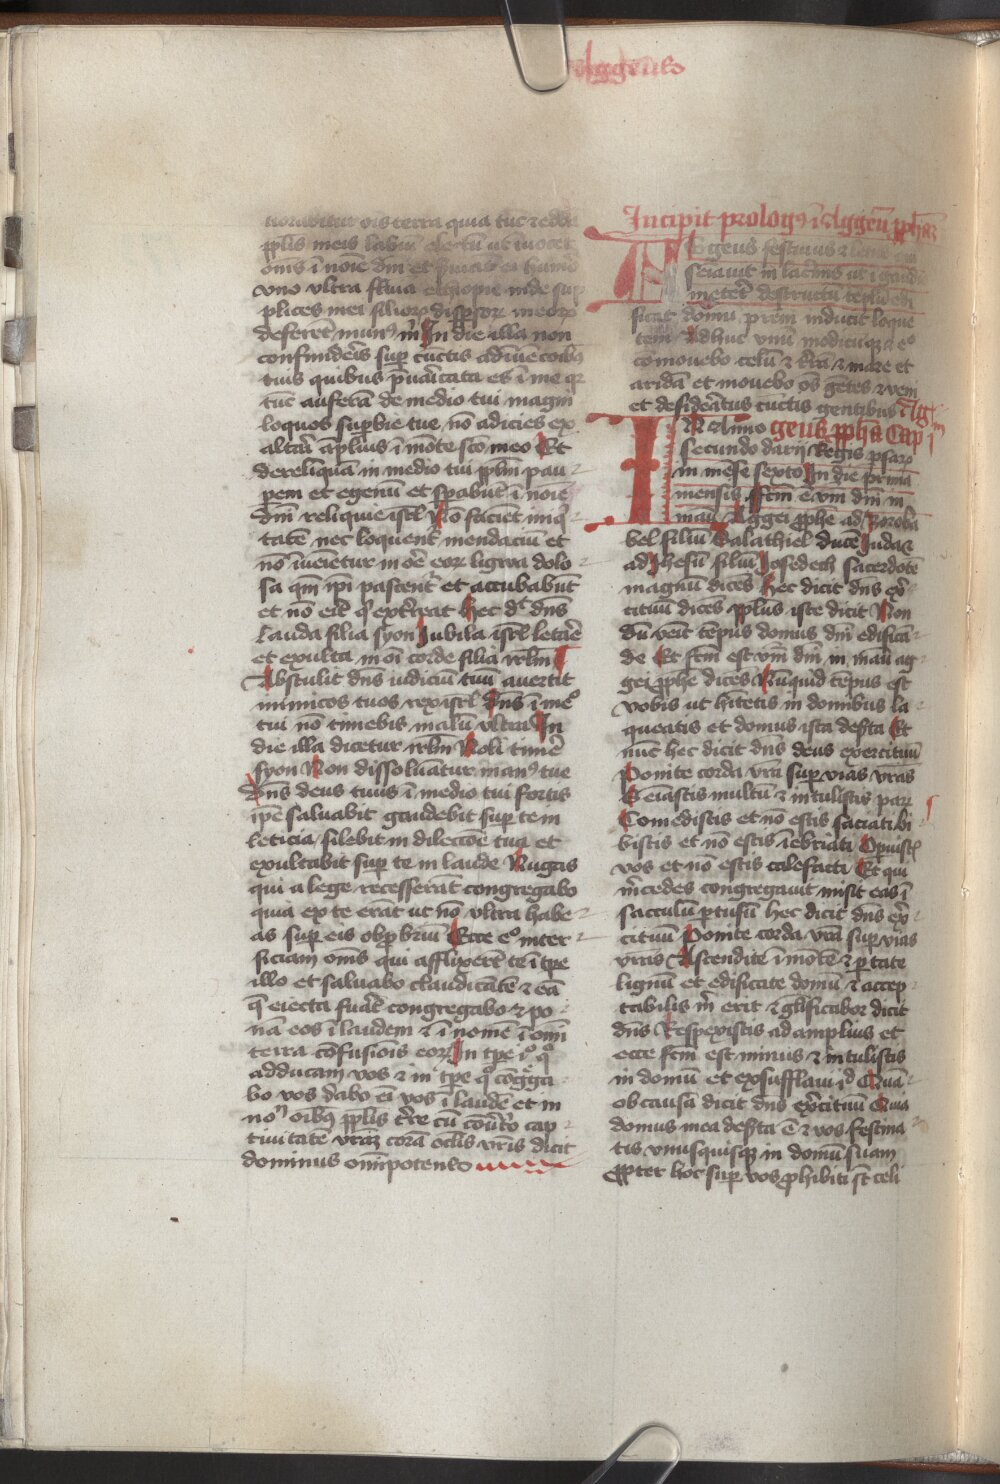 Aggeus
uorabitur ois terra quia tūc reddā
pplis meis labiū electū ut īuocet
oms ī noīe dm et ẜuiāt ei humo
vno vltra flīna ethyopie inde sup
plices mei filioꝝ disp̄soꝝ meoꝝ
deferēt mun9 m̄ In die illa non
confunderis sup cūctis adīuēcoībꝫ
tuis quibus p̄uaricata es ī me qꝛ
tūc auferā de medio tui magni
loquos supbie tue nō adicies ex
altari āplius ī mōte scō meo Et
derelīquā in medio tui pplm pau
pem et egenū et spabūt ī noīe
dm reliquie isrl Nō faciēt iniq
tatē nec loquent mendaciū et
nō īueietur in ore eoꝝ ligwa dolo
sa qm ipi pascent et accubabūt
et nō erit q extreat hec dt dns
Lauda filia syon Iubila isrl letare
et exulta in oi corde filia irlm
Abstulit dns iudiciū tuū auertit
inimicos tuos rex isrl Dns ī meo
tui nō timebis malū vltra In
die illa dicetur irlm Noli timē
syon Non dissoluātur man9 tue
Dns deus tuus ī medio tui fortis
ipe saluabit gaudebit sup te in
leticia silebit in dilectōe tua et
exultabit sup te in laude Nugas
qui a lege recesserāt congregabo
quia ex te erāt ut nō vltra habe
as sup eis obp briū Ecce eo inter
ficiam oms qui afflixerūt te ī tpe
illo et saluabo claudicātē et eā
q̄ eiecta fuat congregabo et po
nā eos ī laudem et ī nomē ī omi
terra cōfusiois eoꝝ In tpe io qo
adducam vos et in tpe qo cōgga
bo vos dabo ei vos ī laudē et in
non oibꝫ pplis tre cū cōuto cap
tiuitatē vraꝫ corā oclis vris dicit
dominus omipotens
Incipit prolog9 ī Aggeū pphaꝫ
Aggeus festiuus et letus
seiauit in lacrimis ut ī gaudio
meteret destructū teplū edi
ficat domū prem inducit loque
tem Adhuc vnū modicuꝫ et eo
comouebo celū et trā et mare et
aridā et mouebo os getes et veni
et desideratus cūctis gentibus Ag
geus ppha Cap i
In Anno
secundo darij Regis psaꝝ
in mese sexto In die prima
mensis fctm e vm dm in
manu Aggei pphe ad zoroba
bel filiū Salathiel ducē Iuda et
ad Ihesū filiū Iosedech sacerdotē
magnū dices hec dicit dns exer
cituū dices pplus iste dicit Non
dū veīt tempus domus dm edificā
de Et fctm est vm dm in manu ag
gei pphe dices Nūquid tempus est
vobis ut hitetis in domibus la
queatis et domus ista deserta Et
nūc hec dicit dns deus exercituū
Ponite corda vra sup vias vras
Seīastis multū et intulistis paꝝ
Comedistis et nō estis saciati bi
bistis et nō estis īebriati Opuistꝭ
vos et nō estis calefacti Et qui
mcedes congregauit misit eas ī
sacculū ptusū hec dicit dns exer
cituū Ponite corda vra sup vias
vras Ascendite ī mōtē et portate
lignū et edificate domū et accep
tabilis m̄ erit et glificabor dicit
dns Respexistis ad amplius et
ecce fctm est minus et intulistis
in domū et exsufflaui id Quā
ob causā dicit dns exercituū Quia
domus mea deserta e et vos festina
tis vnusquisqꝫ in domū suam
Propter hoc sup vos phibiti st celi